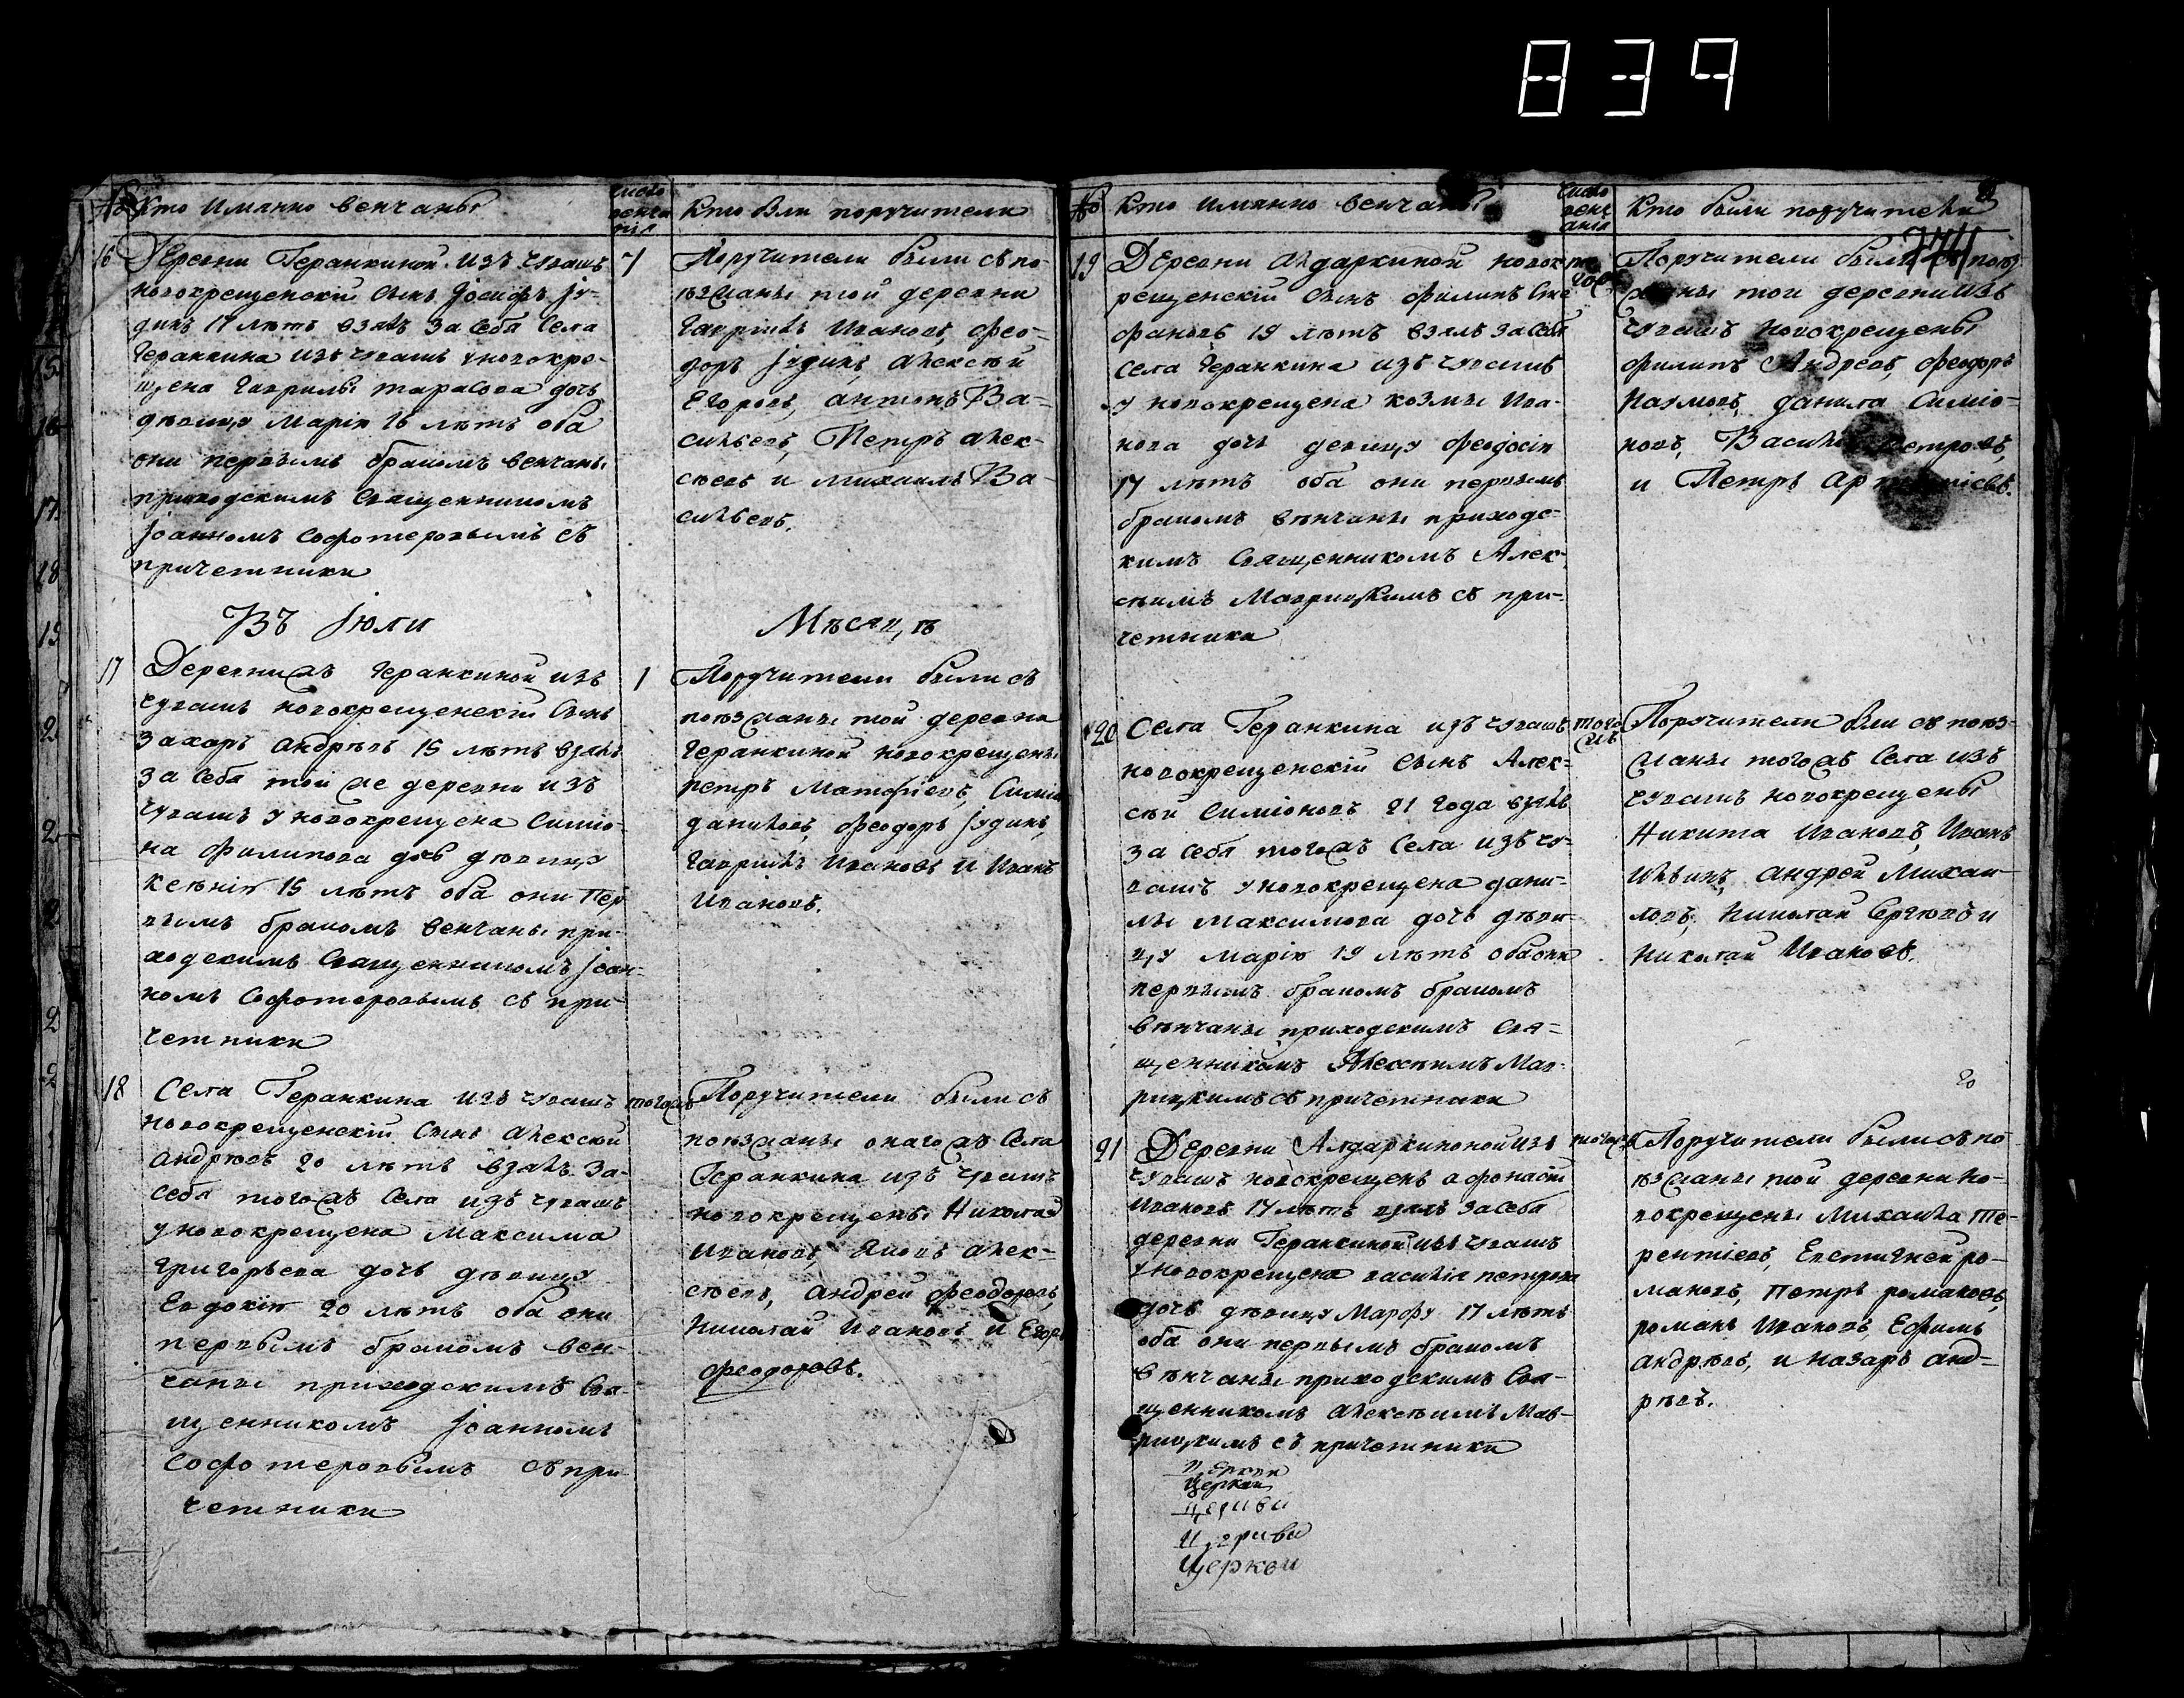 839
№ Кто имянно венчаны
число венча нiя
Кто бли поручители
16 Деревни Геранкиной изъ чувашъ
новокрещенскiй сынъ Iосифъ Iу-
динъ 17 лѣтъ взялъ за себя села
Геранкина изъ чувашъ у новокре-
щена Гаврилы Тарасова дочь
дѣвицу Марiю 16 лѣтъ оба
они первымъ бракомъ венчаны
приходскимъ священникомъ
Iоанномъ Софотеровымъ съ
причетники
7
Поручители были съ по-
ѣзжаны той деревни
Гаврилъ Ивановъ, Фео-
доръ Iудинъ, Алексѣй
Егоровъ, Антонъ Ва-
сильевъ, Петръ Алек-
сѣевъ и Михаилъ Ва-
сильевъ.
Въ Iюли
Мѣсяцѣ
17 Деревни жъ Геранкиной изъ
чувашъ новокрещенскiй сынъ
Захаръ Андрѣевъ 15 лѣтъ взялъ
за себя той же деревни изъ
чувашъ у новокрещена Симiо-
на Филипова дочь дѣвицу
Ксѣнiю 15 лѣтъ оба они пер-
вымъ бракомъ венчаны при-
ходскимъ священникомъ Iоан-
номъ Софотеровымъ съ при-
четники
1
Поручители были съ
поѣзжаны той деревни
Геранкиной новокрещены
Петръ Матфiевъ, Симiо
Даниловъ, Феодоръ Iудинъ,
Гаврилъ Ивановъ и Иванъ
Ивановъ.
18 Села Геранкина изъ чувашъ
новокрещенскiй сынъ Алексѣй
Андрѣевъ 20 лѣтъ взялъ за-
себя тогожъ села изъ чувашъ
у новокрещена Максима
Григорьева дочь дѣвицу
Евдокiю 20 лѣтъ оба они
первымъ бракомъ вен-
чаны приходскимъ свя-
щенникомъ Iоанномъ
Софотеровымъ съ при
четники
тогожъ
Поручители были съ
поѣзжаны онагожъ села
Геранкина изъ чувашъ
новокрещены Николай
Ивановъ, Яковъ Алек-
сѣевъ, Андрей Феодоровъ,
Николай Ивановъ и Егоръ
Феодоровъ.
№ Кто имянно венчаны
число венч анiя
Кто были поручители
19 Деревни Алдаркиной новок
рещенскiй сынъ Филипъ Сте
фановъ 19 лѣтъ взялъ за себя
села Геранкина изъ чувашъ
у новокрещена Козмы Ива-
нова дочь девицу Феодосiю
17 лѣтъ оба они первымъ
бракомъ вѣнчаны приходс-
кимъ священникомъ Алек-
сѣимъ Маврицкимъ съ при-
четники
Поручители были съ поѣз
жаны той деревни изъ
чувашъ новокрещены
Филипъ Андреевъ, Феодоръ
Наумовъ, Данила Симiо-
новъ, Василей Петровъ,
и Петръ
20 Села Геранкина изъ чувашъ
новокрещенскiй сынъ Алек-
сѣй Симiоновъ 21 года взялъ
за себя тогожъ села изъ чу-
вашъ у новокрещена Дани-
лы Максимова дочь дѣви-
цу Марiю 19 лѣтъ оба они
первымъ бракомъ бракомъ
вѣнчаны приходскимъ свя-
щенникомъ Алексѣимъ Мав-
рицкимъ съ причетники
того жъ
Поручители бли съ поѣз-
жаны тогожъ села изъ
чувашъ новокрещены
Никита Ивановъ, Иванъ
Ильинъ, Андрей Михаи-
ловъ, Николай Сергѣевъ и
Николай Ивановъ.
21 Деревни Алдаркиноной изъ
чувашъ новокрещенъ Афонасiй
Ивановъ 17 лѣтъ взялъ за себя
деревни Геранкиной изъ чувашъ
у новокрещена Василiя Петрова
дочь дѣвицу Марфу 17 лѣтъ
оба они первымъ бракомъ
вѣнчаны приходскимъ свя-
щенникомъ Алексѣимъ Мав-
рицкимъ съ причетники
тогожъ
Поручители были съ по
ѣзжаны той деревни но-
вокрещены Михайла Те-
рентiевъ, Евстигней Ро-
мановъ, Петръ Романовъ,
Романъ Ивановъ, Ефимъ
Андрѣевъ, и Назаръ Анд-
рѣевъ.
Церкви
Церкви
Церкви
Церкви
Церкви